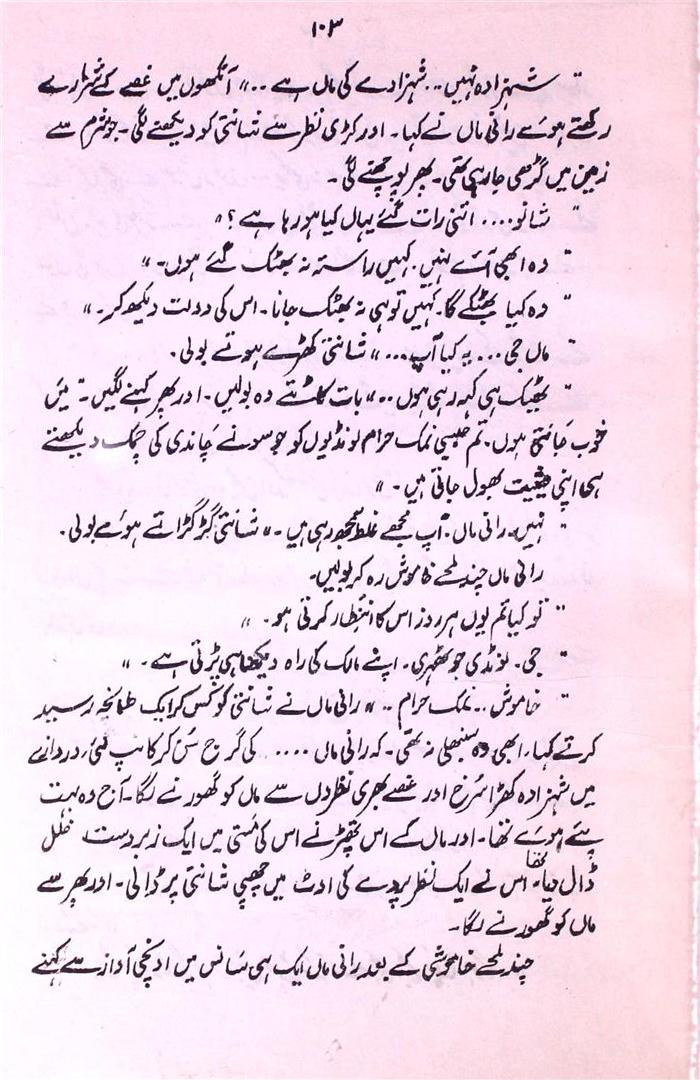 ۱۰۳
" شہزادہ نہیں .. شہزادے کی ماں ہے .. " آنکھوں میں غصے کے شرارے
رکھتے ہوئے رانی ماں نے کہا ۔ اور کڑی نظر سے شانتی کو دیکھنے لگی ۔ جو شرم سے
زمین میں گڑھی جا رہی تھی ۔ پھر پوچھنے لگی ۔
" شانو .... اتنی رات گئے یہاں کیا ہو رہا ہے ؟ "
" وہ ابھی آئے نہیں . کہیں راستہ نہ بھٹک گئے ہوں ۔ "
" وہ کیا بھٹکے گا ۔ کہیں تو ہی نہ بھٹک جانا ۔ اس کی دولت دیکھ کر ۔ "
" ماں جی ... یہ کیا آپ ... " شانتی کھڑے ہوتے بولی .
" ٹھیک ہی کہہ رہی ہوں .. " بات کاٹتے وہ بولیں ۔ اور پھر کہنے لگیں ۔ " میں
خوب جانتی ہوں . تم جیسی نمک حرام لونڈیوں کو جو سونے چاندی کی چمک دیکھتے
ہی اپنی حیثیت بھول جاتی ہیں ۔ "
" نہیں ۔ رانی ماں . آپ مجھے غلط سمجھ رہی ہیں ۔ " شانتی گڑگڑاتے ہوئے بولی .
رانی ماں چند لمحے خاموش رہ کر بولیں ۔
" تو کیا تم یوں ہر روز اس کا انتظار کرتی ہو ۔ "
" جی ۔ لونڈی جو ٹھہری ۔ اپنے مالک کی راہ دیکھنا ہی پڑتی ہے ۔ "
" خاموش .. نمک حرام .. " رانی ماں نے شانتی کو کس کر ایک طمانچہ رسید
کرتے کہا ۔ ابھی وہ سنبھلی نہ تھی ۔ کہ رانی ماں .... کی گرج سن کر کانپ گئی . دروازے
میں شہزادہ کھڑا سرخ اور غصے بھری نظروں سے ماں کو گھورنے لگا ۔ آج وہ بہت
پئے ہوئے تھا ۔ اور ماں کے اس تھپڑ نے اس کی مستی میں ایک زبردست خلل
ڈال دیا تھا ۔ اس نے ایک نظر پردے کی اوٹ میں چھپی شانتی پر ڈالی ۔ اور پھر سے
ماں کو گھورنے لگا ۔
چند لمحے خاموشی کے بعد رانی ماں ایک ہی سانس میں اونچی آواز سے کہنے